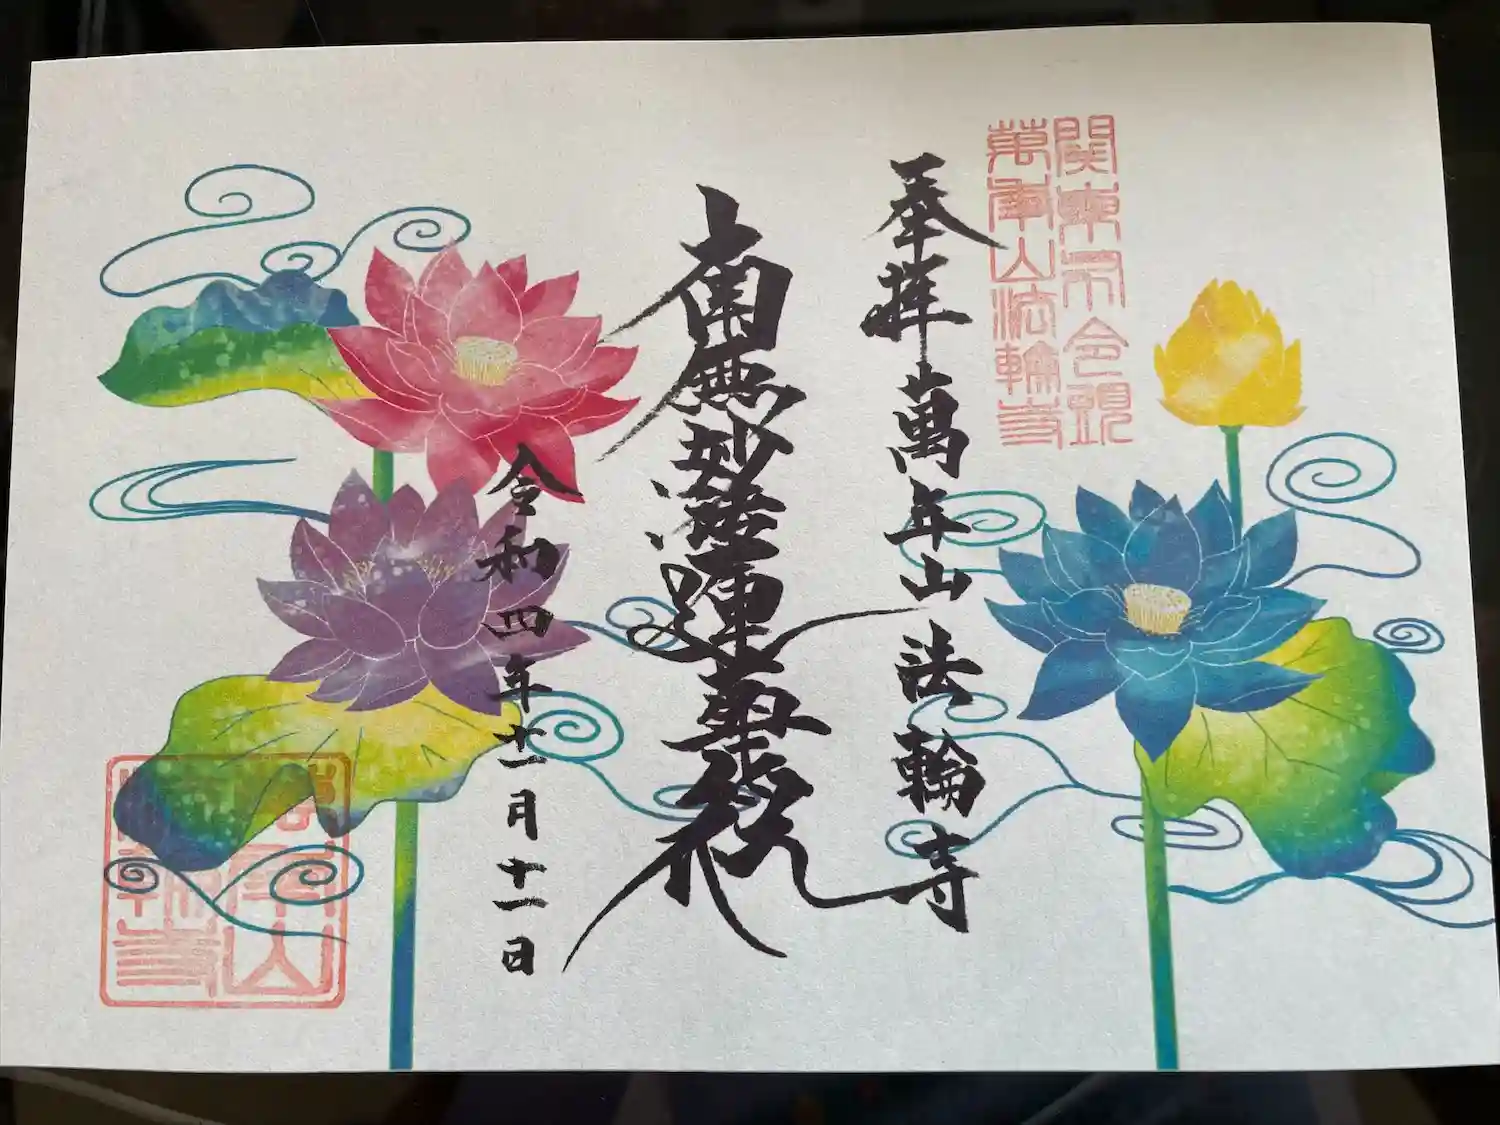 萬年山法輪寺
奉拝 萬年山 法輪寺
南無妙法蓮華経
令和四年十一月十一日
萬年山
法輪寺